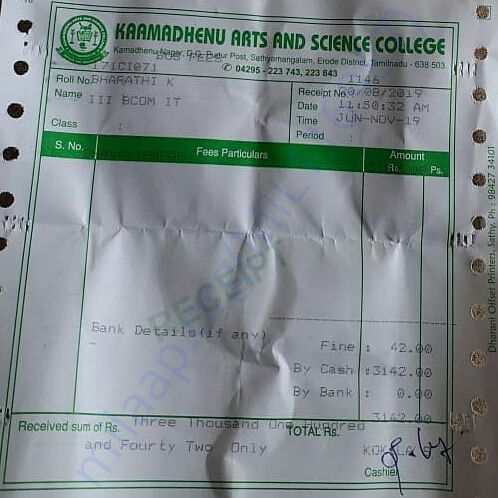 KAAMADHENU ARTS AND SCIENCE COLLEGE
Kamadhenu Nagar, D.G. Pudur Post, Sathyamangalam, Erode District, Tamilnadu - 638 503
BUS FEES
✆ 04295 - 223 743, 223 843
171CI071
Roll No BHARATHI K
Name III BCOM IT
Class :
1146
Receipt No 09/08/2019
Date 11:50:32 AM
Time JUN-NOV-19
Period :
S. No. Fees Particulars Amount
Rs. Ps.
RECEIPT
Bank Details(if any)
-
Fine : 42.00
By Cash :3142.00
By Bank : 0.00
3142.00
Three Thousand One Hundred
Received sum of Rs. TOTAL Rs.
and Fourty Two Only KOKILA
Cashier
Dharani Offset Printers, Sathy, Ph : 98427 34101